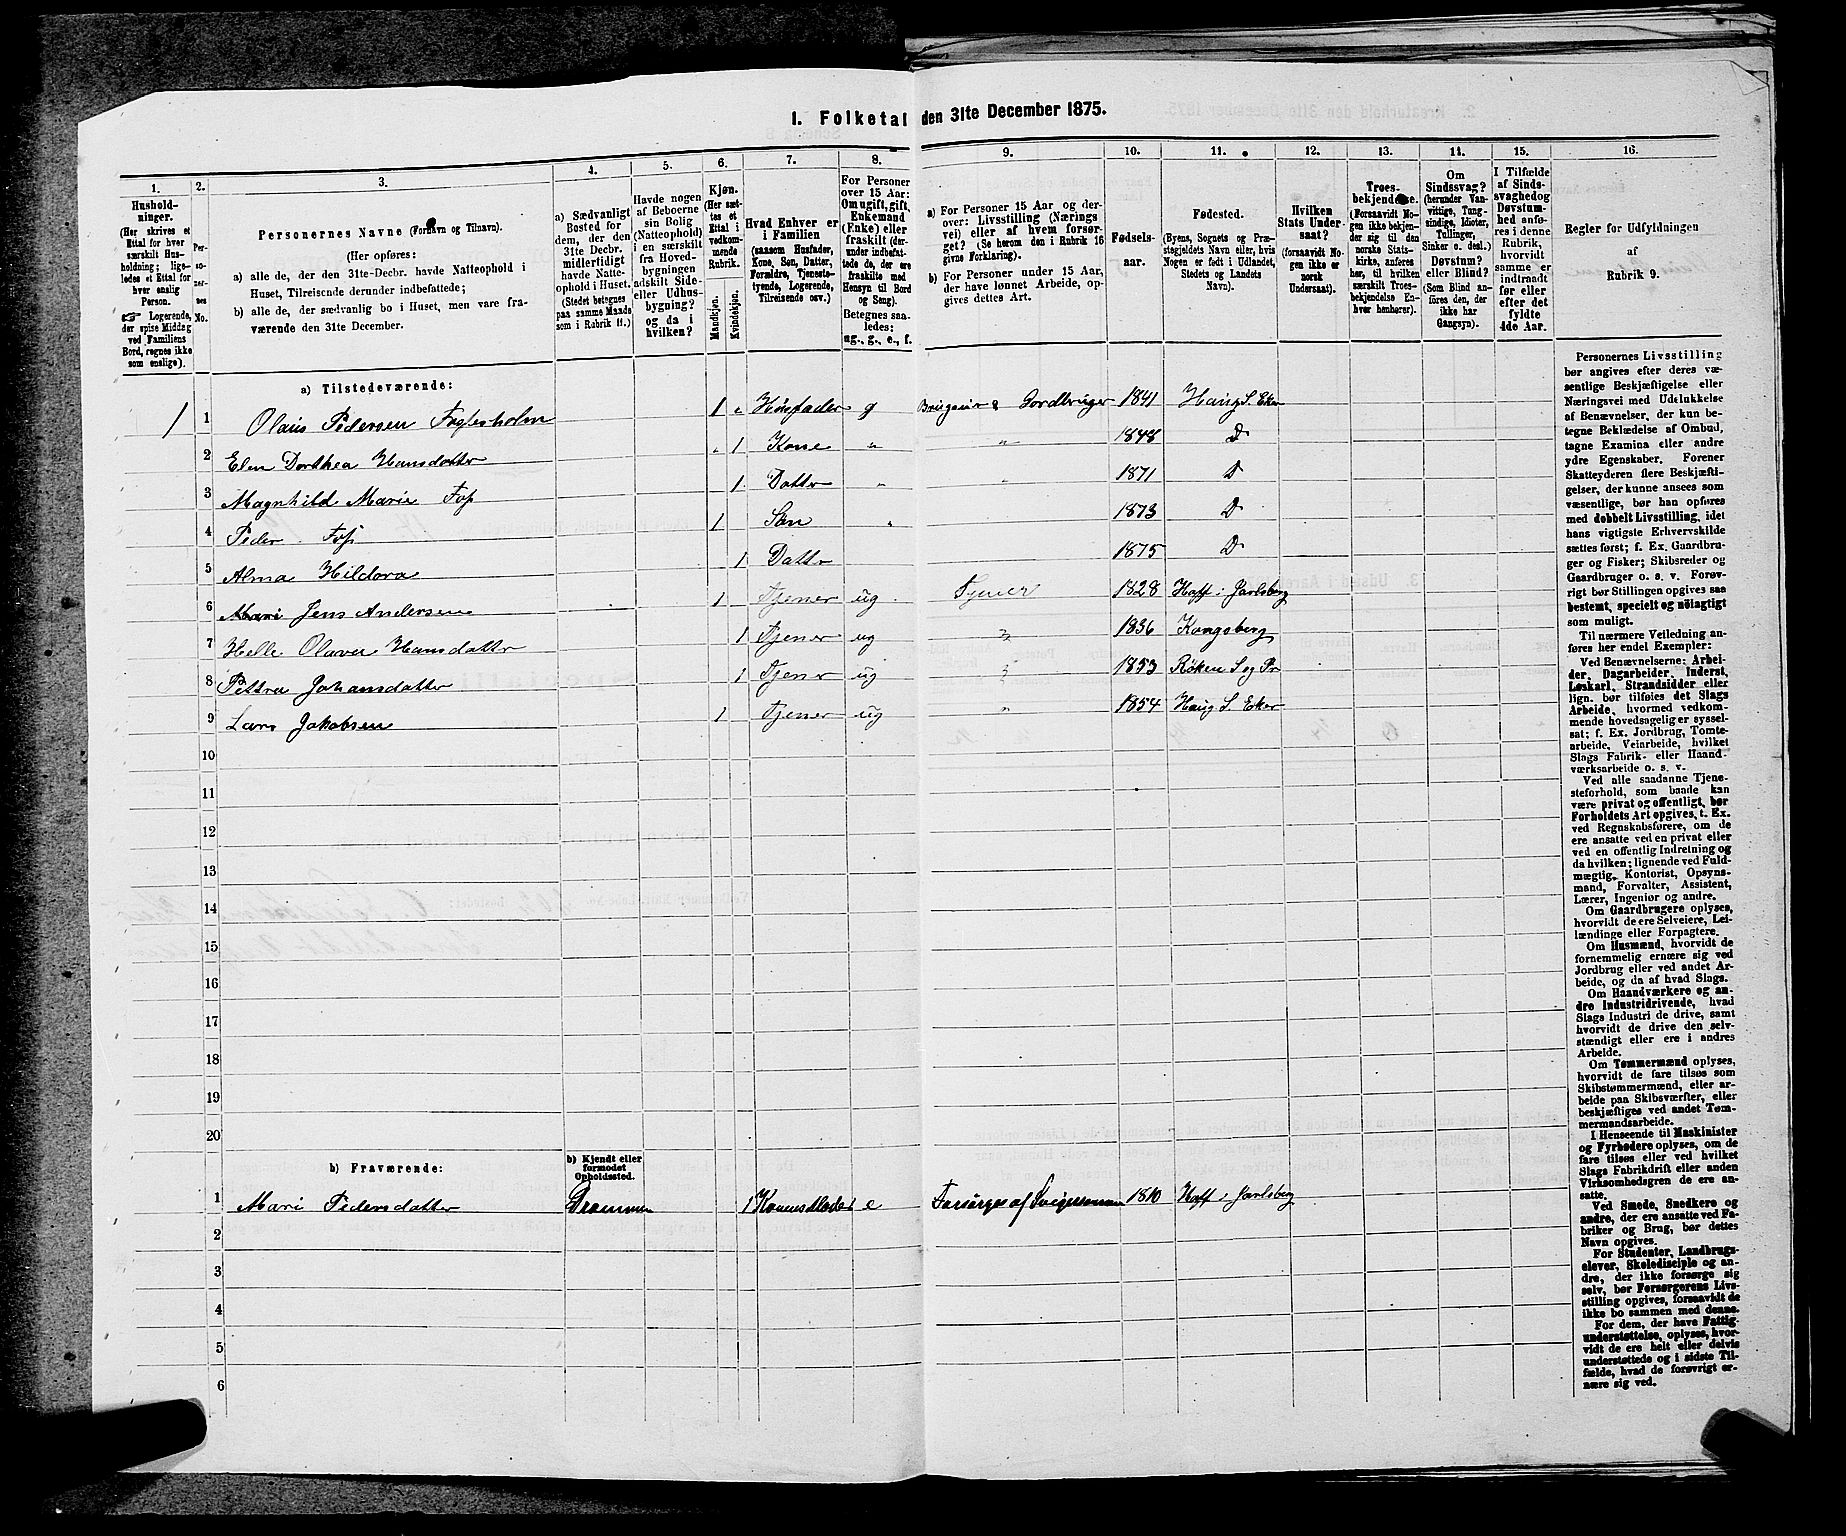 I. Folketal den 31te December 1875.
1.
Hushold-
ninger.
(Her skrives et
Ettal for hver
særskilt Hus-
holdning; lige-
ledes et Ettal for
hver enslig
Person.
☞ Logerende,
der spise Middag
ved Familiens
Bord, regnes ikke
som enslige).
2.
Per-
so-
ner-
nes
No.
3.
Personernes Navne (Fornavn og Tilnavn).
(Her opføres:
a) alle de, der den 31te-Decbr. havde Natteophold i
Huset, Tilreisende derunder indbefattede;
b) alle de, der sædvanlig bo i Huset, men vare fra-
værende den 31te December.
4.
a) Sædvanligt
Bosted for
dem, der den
31te Decbr.
midlertidigt
havde Natte-
ophold i Huset.
(Stedet betegnes
paa samme Maade
som i Rubrik 11.)
5.
Havde nogen
af Beboerne
sin Bolig
(Natteophold)
i en særskilt
fra Hoved-
bygningen
adskilt Side-
eller Udhus-
bygning?
og da i
hvilken?
6.
Kjøn.
(Her sæt-
tes et
Ettal i
vedkom-
mende
Rubrik.
Mandkjøn.
Kvindekjøn.
7.
Hvad Enhver er
i Familien
(saasom Husfader,
Kone, Søn, Datter,
Forældre, Tjeneste-
tyende, Logerende,
Tilreisende osv.)
8.
For Personer
over 15 Aar:
Om ugift, gift,
Enkemand
(Enke) eller
fraskilt (der-
under indbefat-
tede de, der ere
fraskilte med
Hensyn til Bord
og Seng).
Betegnes saa-
ledes:
ug., g., e., f.
9.
a) For Personer 15 Aar og der-
over: Livsstilling (Nærings
vei) eller af hvem forsør-
get? (Se herom den i Rubrik 16
givne Forklaring).
b) For Personer under 15 Aar,
der have lønnet Arbeide, op-
gives dettes Art.
10.
Fødsels-
aar.
11.
Fødested.
(Byens, Sognets og Præ-
stegjeldets Navn eller, hvis
Nogen er født i Udlandet,
Stedets og Landets
Navn).
12.
Hvilken
Stats Under-
saat?
(forsaavidt No-
gen ikke er
norsk
Undersaat).
13.
Troes-
bekjendelse.
(Forsaavidt No-
gen ikke bekjen-
der sig til den
norske Stats-
kirke, anføres
her, til hvilken
særskilt Troes-
bekjendelse En-
hver henhører).
14.
Om
Sindssvag?
(herunder Van-
vittige, Tung-
sindige, Idioter,
Tullinger,
Sinker o. desl.)
Døvstum?
eller Blind?
(Som Blind an-
føres den, der
ikke har
Gangsyn).
15.
I Tilfælde
af Sinds-
svaghed og
Døvstum-
hed anfø-
res i denne
Rubrik,
hvorvidt
samme er
indtraadt
før eller
efter det
fyldte
4de Aar.
16.
Regler for Udfyldningen
af
Rubrik 9.
a) Tilstedeværende:
1 1 Olaus Pedersen Foglesholm 1 Husfader g Brugseier & Jordbruger 1841 Haug S. Eker
2 Elen Dorthea Hansdatter 1 Kone " " 1848 D
3 Magnhild Marie 1 Datter " 1871 D
4 Peder 1 Søn " 1873 D
5 Alma Hildora 1 Datter 1875 D
6 Jens Andersen 1 Tjener ug Tjener 1828 Hoff i Jarlsberg
7 Helle Olava Hansdatter 1 Tjener ug " 1836 Kongsberg
8 Pettra Johansdatter 1 Tjener ug " 1853 Røken S og Pr
9 Lars Jakobsen 1 Tjener ug " 1854 Haug S. Eker
10
11
12
13
14
15
16
17
18
19
20
b) Fraværende:
b) Kjendt eller
formodet
Opholdssted.
1 Mari Pedersdatter Drammen 1 Konens Moder e Forsørges af Svigersønnen 1810 Hoff i Jarlsberg
2
3
4
5
6
Personernes Livsstilling
bør angives efter deres væ-
sentlige Beskjæftigelse eller
Næringsvei med Udelukkelse
af Benævnelser, der kun be-
tegne Beklædelse af Ombud,
tagne Examina eller andre
ydre Egenskaber. Forener
Skatteyderen flere Beskjæfti-
gelser, der kunne ansees som
væsentlige, bør han opføres
med dobbelt Livsstilling, idet
hans vigtigste Erhvervskilde
sættes først; f. Ex. Gaardbru-
ger og Fisker; Skibsreder og
Gaardbruger o. s. v. Forøv-
rigt bør Stillingen opgives saa
bestemt, specielt og nöiagtigt
som muligt.
Til nærmere Veiledning an-
føres her endel Exempler:
Ved Benævnelserne: Arbei-
der, Dagarbeider, Inderst,
Løskarl, Strandsidder eller
lign. bør tilføies det Slags
Arbeide, hvormed vedkom-
mende hovedsagelig er syssel-
sat; f. Ex. Jordbrug, Tomte-
arbeide, Veiarbeide, hvilket
Slags Fabrik- eller Haand-
værksarbeide o. s. v.
Ved alle saadanne Tjene-
steforhold, som baade kan
være privat og offentligt, bør
Forholdets Art opgives, t. Ex.
ved Regnskabsførere, om de
ere ansatte ved en privat eller
ved en offentlig Indretning og
da hvilken; lignende ved Fuld-
mægtig, Kontorist, Opsyns-
mand, Forvalter, Assistent,
Lærer, Ingeniør og andre.
Om Gaardbrugere oplyses,
hvorvidt de ere Selveiere, Lei-
lændinge eller Forpagtere.
Om Husmænd, hvorvidt de
fornemmelig ernære sig ved
Jordbrug eller ved andet Ar-
beide, og da af hvad Slags.
Om Haandværkere og an-
dre Industridrivende, hvad
Slags Industri de drive, samt
hvorvidt de drive den selv-
stændigt eller ere i andres
Arbeide.
Om Tømmermænd oplyses,
hvorvidt de fare tilsøs som
Skibstømmermænd, eller ar-
beide paa Skibsværfter, eller
beskjæftiges ved andet Tøm-
mermandsarbeide.
I Henseende til Maskinister
og Fyrbødere oplyses, om de
fare tilsøs eller ved hvilket
Slags Fabrikdrift eller anden
Virksomhedsgren de ere an-
satte.
Ved Smede, Snedkere og
andre, der ere ansatte ved Fa-
briker og Brug, bør dettes
Navn opgives.
For Studenter, Landbrugs-
elever, Skoledisciple og an-
dre, der ikke forsørge sig
selv, bør Forsørgerens Livs-
stilling opgives, forsaavidt de
ikke bo sammen med denne.
For dem, der have Fattig-
understøttelse, oplyses, hvor-
vidt de ere helt eller delvis
understøttede og i sidste Til-
fælde, hvad de forøvrigt er-
nære sig ved.